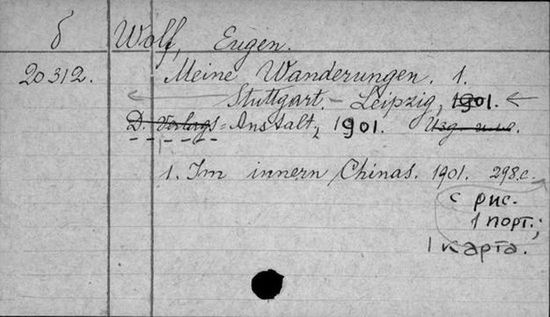 б Wolf, Eugen.
20312. Meine Wanderungen. 1.
Stuttgart. - Leipzig, 1901.
D. Verlags-Anstalt, 1901. Изд. и л.
1. Im innern Chinas. 1901. 298 с.
с рис.
1 порт.;
1 карта.